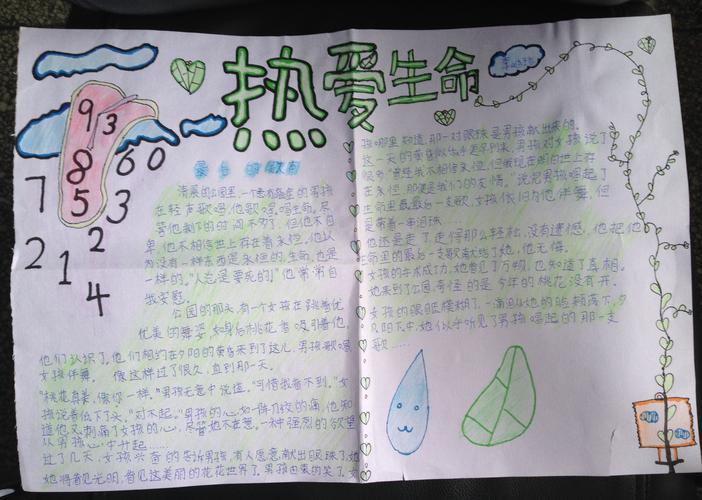 热爱生命
9
3
8
6
0
7
5
3
2
2
1
4
清晨的公园里,一个患有癌症的男孩
在轻声歌唱,他歌唱生命。尽
管他剩下的时间不多了,但他不自
卑,他不相信世上存在着永恒,他认
为没有一样东西是永恒的,生命也是
一样的。"人总是要死的!"他常常自
我安慰。
公园的那头,有一个女孩在跳着优
优美的舞姿,如身后桃花者吸引着他,
他们认识了,他们相约在夕阳的黄昏来到了这儿,男孩歌唱
女孩伴舞。像这样过了很久,直到那一天。
"桃花真美,像你一样。"男孩无意中说道。"可惜我看不到。"女
孩说着低下了头。"对不起。"男孩的心如一阵刀绞的痛,他知
道他又刺痛了女孩的心,尽管她不在意。一种强烈的欲望
从男孩心中升起……
过了几天,女孩兴奋的告诉男孩,有人愿意献出眼珠了,她
她将看见光明,看见这美丽的花花世界了。男孩由衷的笑了,女
孩哪里知道,那一对眼珠是男孩献出来的。
这一天的黄昏似乎来得早,男孩对女孩说了
很多"曾经我不相信永恒,但我现在明白世上存
在永恒,那便是我们的友情。"说完男孩唱起了
生命里最后一支歌,女孩依旧为他伴舞,但
是带着一串泪珠……
他还是走了,走得那么轻松,没有遗憾。他把他
生命里的最后一支歌献给了她,他无悔。
女孩的手术成功,她看见了万物,也知道了真相。
她来到了公园,奇怪的是今年的桃花没有开。
女孩的眼眶模糊了,一滴泪从她的脸颊落下,夕
阳下,她似乎听见了男孩唱起的那一支
歌……